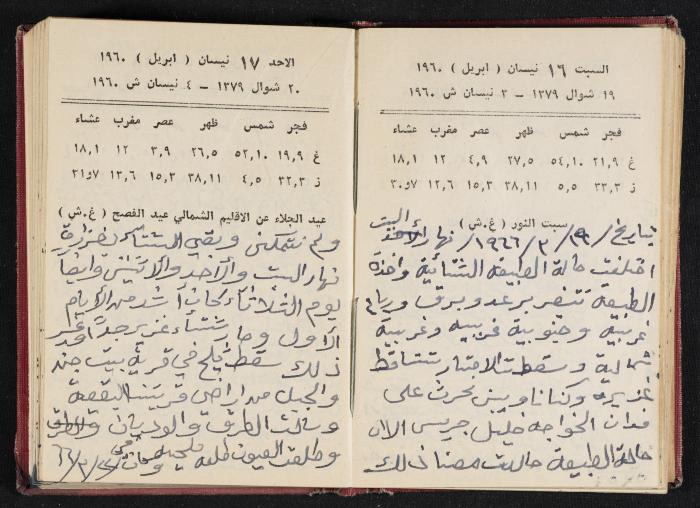 السبت ١٦ نيسان ( ابريل ) ١٩٦٠
١٩ شوال ١٣٧٩ – ٣ نيسان ش ١٩٦٠
فجر شمس ظهر عصر مغرب عشاء
غ ٢١,٩ ٥٤,١٠ ٢٧,٥ ٤,٩ ١٢ ١٨,١
ز ٣٣,٣ ٥,٥ ٣٨,١١ ١٥,٣ ١٢,٦ ٧و٣٠
سبت النور ( غ.ش )
بتاريخ / ١٩٦٦/٣/ نهار السبت
اختلفت حالة الطبيعة الشتائية واخذة
الطبيعة تنفجر برعد وبرق ورياح
غربية وجنوبية غربيه وغربية
شمالية وسقطت الامطار تتساقط
غزيرة وكنا ناويين نحرث على
فدان الخواجه خليل جريس الان
حالة الطبيعة حالت مصنا ذلك
الاحد ١٧ نيسان ( ابريل ) ١٩٦٠
٢٠ شوال ١٣٧٩ – ٤ نيسان ش ١٩٦٠
فجر شمس ظهر عصر مغرب عشاء
غ ١٩,٩ ٥٢,١٠ ٢٦,٥ ٣,٩ ١٢ ١٨,١
ز ٣٢,٣ ٤,٥ ٣٨,١١ ١٥,٣ ١٣,٦ ٧و٣١
عيد الجلاء عن الاقليم الشمالي عيد الفصح ( غ.ش )
ولم نتمكن وبقي الشتاء بغزارة
نهار السبت والأحد والاثنين وايضا
يوم الثلاثاء كان أشد من الأيام
الأول وصار شتاء غزير جدا
ذلك سقط ثلج في قرية بيت جن
والجبل من اراضي قريتنا البقيعة
وسالت الطرق والوديان
وطلعت العيون